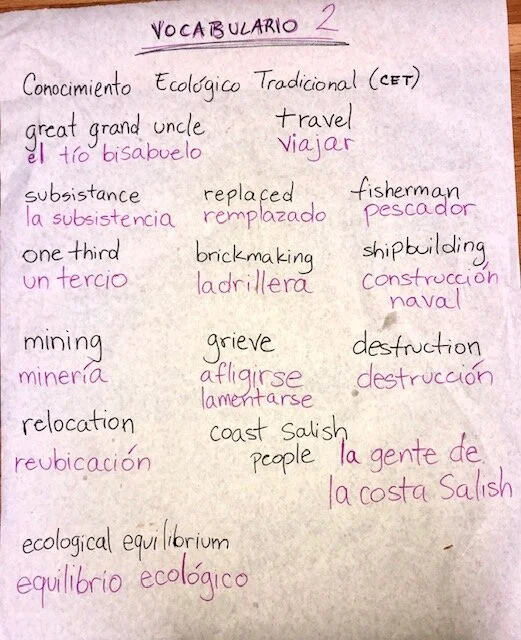 VOCABULARIO 2
Conocimiento Ecológico Tradicional (CET)
great grand uncle
el tío bisabuelo
travel
viajar
subsistance
la subsistencia
replaced
remplazado
fisherman
pescador
one third
un tercio
brickmaking
ladrillera
shipbuilding
construcción
naval
mining
minería
grieve
afligirse
lamentarse
destruction
destrucción
relocation
reubicación
coast Salish
people
la gente de
la costa Salish
ecological equilibrium
equilibrio ecológico